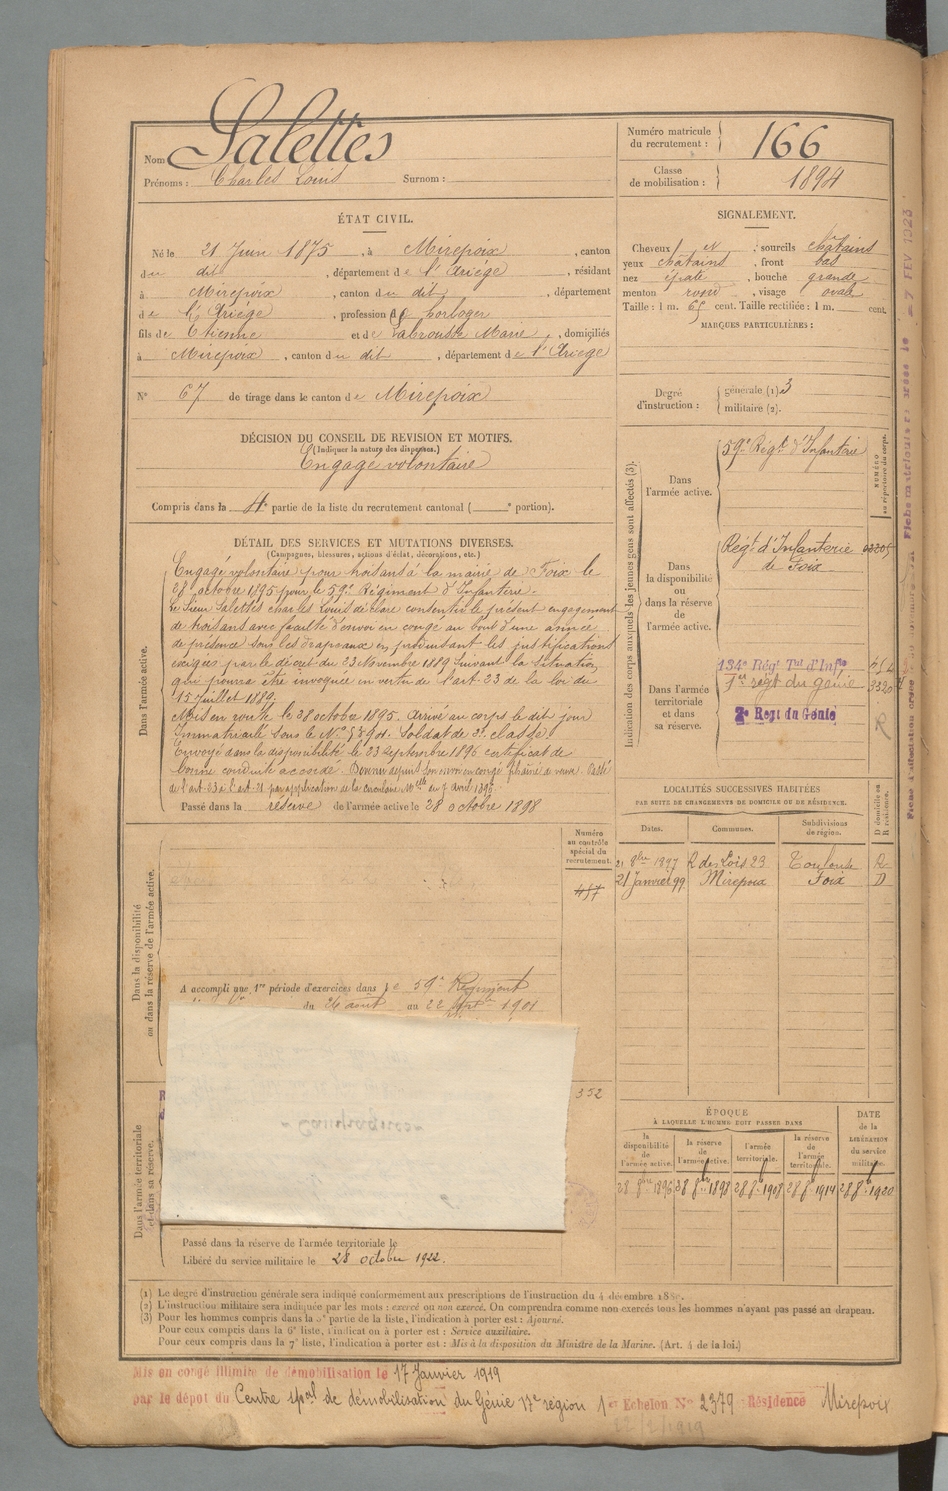 Nom Salettes
Prénoms : Charles Louis Surnom :
Numéro matricule du recrutement : 166
Classe de mobilisation : 1894
ÉTAT CIVIL.
Né le 21 Juin 1875, à Mirepoix, canton
du dit, département de l'Ariège, résidant
à Mirepoix, canton du dit, département
de l'Ariège, profession d horloger
fils de Etienne et de Labrousse Marie, domiciliés
à Mirepoix, canton du dit, département de l'Ariège
N° 67 de tirage dans le canton de Mirepoix
SIGNALEMENT.
Cheveux et, sourcils châtains
yeux châtains, front bas
nez épaté, bouche grande
menton rond, visage ovale
Taille : 1 m. 65 cent. Taille rectifiée : 1 m. cent.
MARQUES PARTICULIÈRES :
Degré d'instruction : générale (1) 3
militaire (2).
DÉCISION DU CONSEIL DE REVISION ET MOTIFS.
(Indiquer la nature des dispenses.)
Engagé volontaire
Compris dans la 4e partie de la liste du recrutement cantonal ( e portion).
DÉTAIL DES SERVICES ET MUTATIONS DIVERSES.
(Campagnes, blessures, actions d'éclat, décorations, etc.)
Dans l'armée active.
Engagé volontaire pour trois ans à la mairie de Foix le
28 octobre 1895 pour le 59e Régiment d'Infanterie.
Le Sieur Salettes Charles Louis déclare consentir le présent engagement
de trois ans avec faculté d'envoi en congé au bout d'une année
de présence sous les drapeaux en produisant les justifications
exigées par le décret du 23 Novembre 1889 suivant la situation
qui pourra être invoquée en vertu de l'art. 23 de la loi du
15 juillet 1889.
Mis en route le 28 octobre 1895. Arrivé au corps le dit jour
Immatriculé sous le N° Soldat de 2e classe
Envoyé dans la disponibilité le 23 Septembre 1896 certificat de
bonne conduite accordé. Devenu depuis son envoi en congé fils aîné de veuve. Passé
de l'art. 23 à l'art. 21 par application de la circulaire Mlle du 7 avril 1896.
Passé dans la réserve de l'armée active le 28 octobre 1898
Indication des corps auxquels les jeunes gens sont affectés (3).
NUMÉRO au répertoire du corps.
Dans l'armée active.
59e Régt d'Infanterie
Dans la disponibilité ou dans la réserve de l'armée active.
Régt d'Infanterie
de Foix
Dans l'armée territoriale et dans sa réserve.
134e Régt Tal d'Infie
1er régt du génie
2e Regt du Génie
LOCALITÉS SUCCESSIVES HABITÉES
PAR SUITE DE CHANGEMENTS DE DOMICILE OU DE RÉSIDENCE.
Dates. Communes. Subdivisions de région. D domicile ou R résidence.
21 8bre 1897 R des Lois 23 Toulouse R
21 Janvier 99 Mirepoix Foix D
Dans la disponibilité ou dans la réserve de l'armée active.
Numéro au contrôle spécial du recrutement.
A accompli une 1re période d'exercices dans le 59e Régiment
du 26 août au 22 1901
352
Campagnes
Dans l'armée territoriale et dans sa réserve.
Passé dans la réserve de l'armée territoriale le
Libéré du service militaire le 28 octobre 1922.
ÉPOQUE
À LAQUELLE L'HOMME DOIT PASSER DANS
la disponibilité de l'armée active. la réserve de l'armée active. l'armée territoriale. la réserve de l'armée territoriale. DATE de la LIBÉRATION du service militaire.
28 8bre 1896 28 8bre 1898 28 8e 1908 28 8e 1914 28 8e 1920
(1) Le degré d'instruction générale sera indiqué conformément aux prescriptions de l'instruction du 4 décembre
(2) L'instruction militaire sera indiquée par les mots : exercé ou non exercé. On comprendra comme non exercés tous les hommes n'ayant pas passé au drapeau.
(3) Pour les hommes compris dans la 5e partie de la liste, l'indication à porter est : Ajourné.
Pour ceux compris dans la 6e liste, l'indication à porter est : Service auxiliaire.
Pour ceux compris dans la 7e liste, l'indication à porter est : Mis à la disposition du Ministre de la Marine. (Art. 4 de la loi.)
Mis en congé illimité de démobilisation le 17 Janvier 1919
par le dépôt du Centre spal de démobilisation du Génie 17e région 1er Echelon No 2379 Résidence Mirepoix
12/2/1919